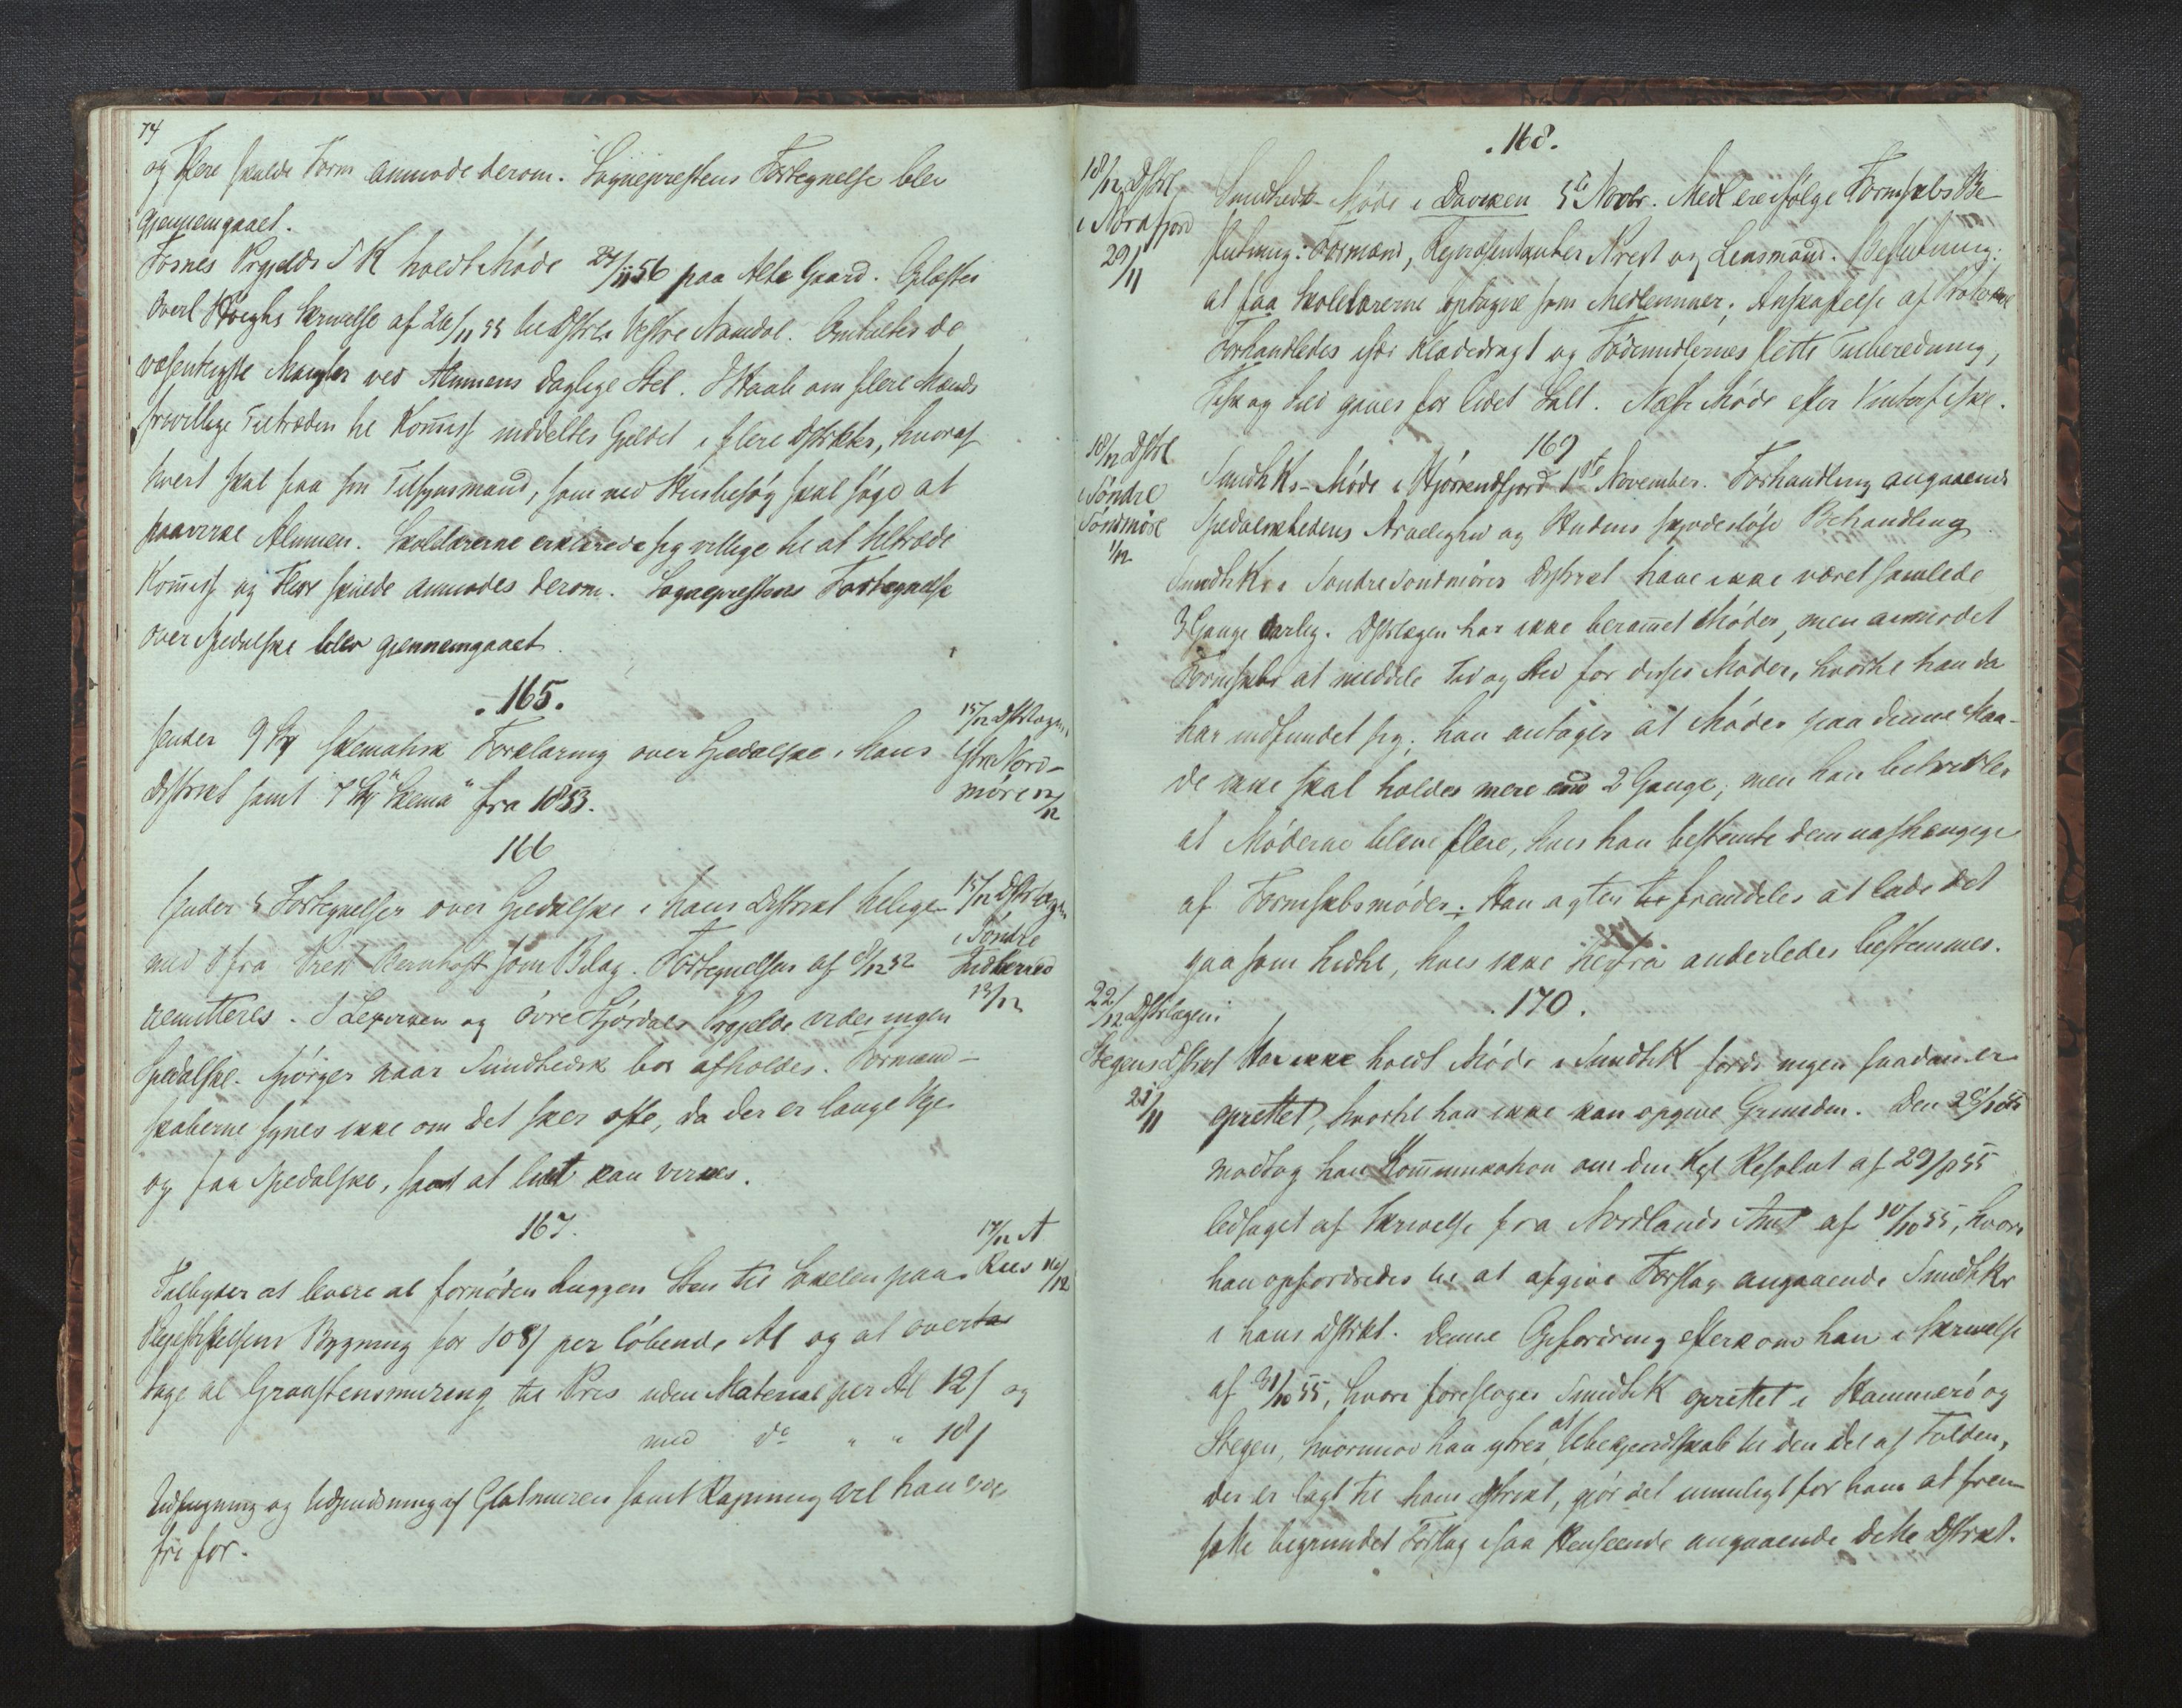 74
og Flere skulde Form anmode derom. Sognepræstens Fortegnelse blev
gjennemgaaet.
Fosnes Prgjelds S K holdt Møde 24/11 56 paa Gaard. Oplæstes
Overl Høeghs Skrivelse af 26/11 55 til Dstrl. Vestre Namdal. Omtaltes de
væsentligste Mangler ved Almuens daglige Stel. I Haab om flere Mænds
frivillige Tiltræden til Komiss inddeltes Gjeldet i flere Distrikter, hvoraf
hvert skal faa sin Tilsynsmand, som ved Husbesøg skal søge at
paavirke Almuen. Skolelærerne erklærede sig villige til at tiltræde
Komiss og Flere skulde anmodes derom. Sognepræstens Fortegnelse
over Spedalske blev gjennemgaaet.
.165.
15/12 Dstrlægen i
Sender 9 Stk skematisk Forklaring over Spedalske i hans
Ytre Nord-
Dstrikt samt 7 Stk "Skema" fra 1853.
møre 12/12
166
Sender 5 Fortegnelser over Spedalske i hans Distrikt tillige-
15/12 Dstrlægen
med 1 fra Præst Bernhoft som Bilag. Fortegnelsen af 8/12 52
i Søndre
Indherred
remitteres. I Lexviken og Øvre Stjørdals Prgjelde vides ingen
13/12
Spedalske. Spørger naar Sundhedsk bør afholdes. Formænd-
skaberne synes ikke om det sker ofte, da der er lange Veje
og faa Spedalske, samt at lidt kan virkes.
167.
17/12 A
Tilbyder at levere al fornøden huggen Sten til Sokelen paa
Rees 16/12
Plejestiftelsens Bygning for 108/ per løbende Al og at over
tage al Graastensmuring til Pris uden Material per Al 12/ og
med do " " 18/
Udfugning og Udpudsning af Glatmuren samt Rapning vil han være
fri for.
.168.
18/12 Dstrl
i Nordfjord
29/11
Sundheds-Møde i Davigen 5te Novbr. Medl ere ifølge Formskabs Be-
slutning: Formænd, Repræsentanter Præst og Lensmand. Beslutning:
at faa Skolelærerne optagne som Medlemmer; Anskaffelse af
Forhandledes især Klædedragt og Fødemidlernes slette Tilberedning,
Fisk og Sild gives for lidet Salt. Næste Møde efter Vinterfiske.
169
18/12 Dstrl
i Søndre
Søndmøre
1/12
Sundhks-Møde i Hjørrendfjord 1ste November. Forhandling angaaende
Spedalskhedens Arvelighed og Hudens skjødesløse Behandling
Sundhks i Søndre Søndmøres Dstrikt have ikke været samlede
3 Gange aarlig. Dstrlægen har ikke berammet Møder, men anmodet
Formskabs at meddele Tid og Sted for disses Møder, hvortil han da
har indfundet sig; han antager at Møder paa denne Maa-
de ikke skal holdes mere end 2 Gange; men han betvivler
at Møderne bleve flere, hvis han bestemte dem uafhængige
af Formskabsmøder. Han agter fremdeles at lade det
gaa som hidtil, hvis ikke herfra anderledes bestemmes.
.170.
22/12 Dstrlægen i
Stegens Dstrikt
25/11
Har ikke holdt Møde i SundhK fordi ingen saadan er
oprettet, hvortil han ikke kan opgive Grunden. Den
modtog han Kommunikation om den Kgl Resolut af 29/8 55
ledsaget af Skrivelse fra Nordlands Amt af 10/10 55, hvori
han opfordredes til at afgive Forslag angaaende Sundhks
i hans Dstrikt. Denne Opfordring efterkom han i Skrivelse
af 31/10 55, hvori foresloges SundhK oprettet i Hammerø og
Stegen, hvorimod han ytrer at Ubekjendtskab til den Del af Folden,
der er lagt til hans Dstrikt, gjør det umuligt for ham at frem-
sætte begrundet Forslag i saa Henseende angaaende dette Dstrikt.